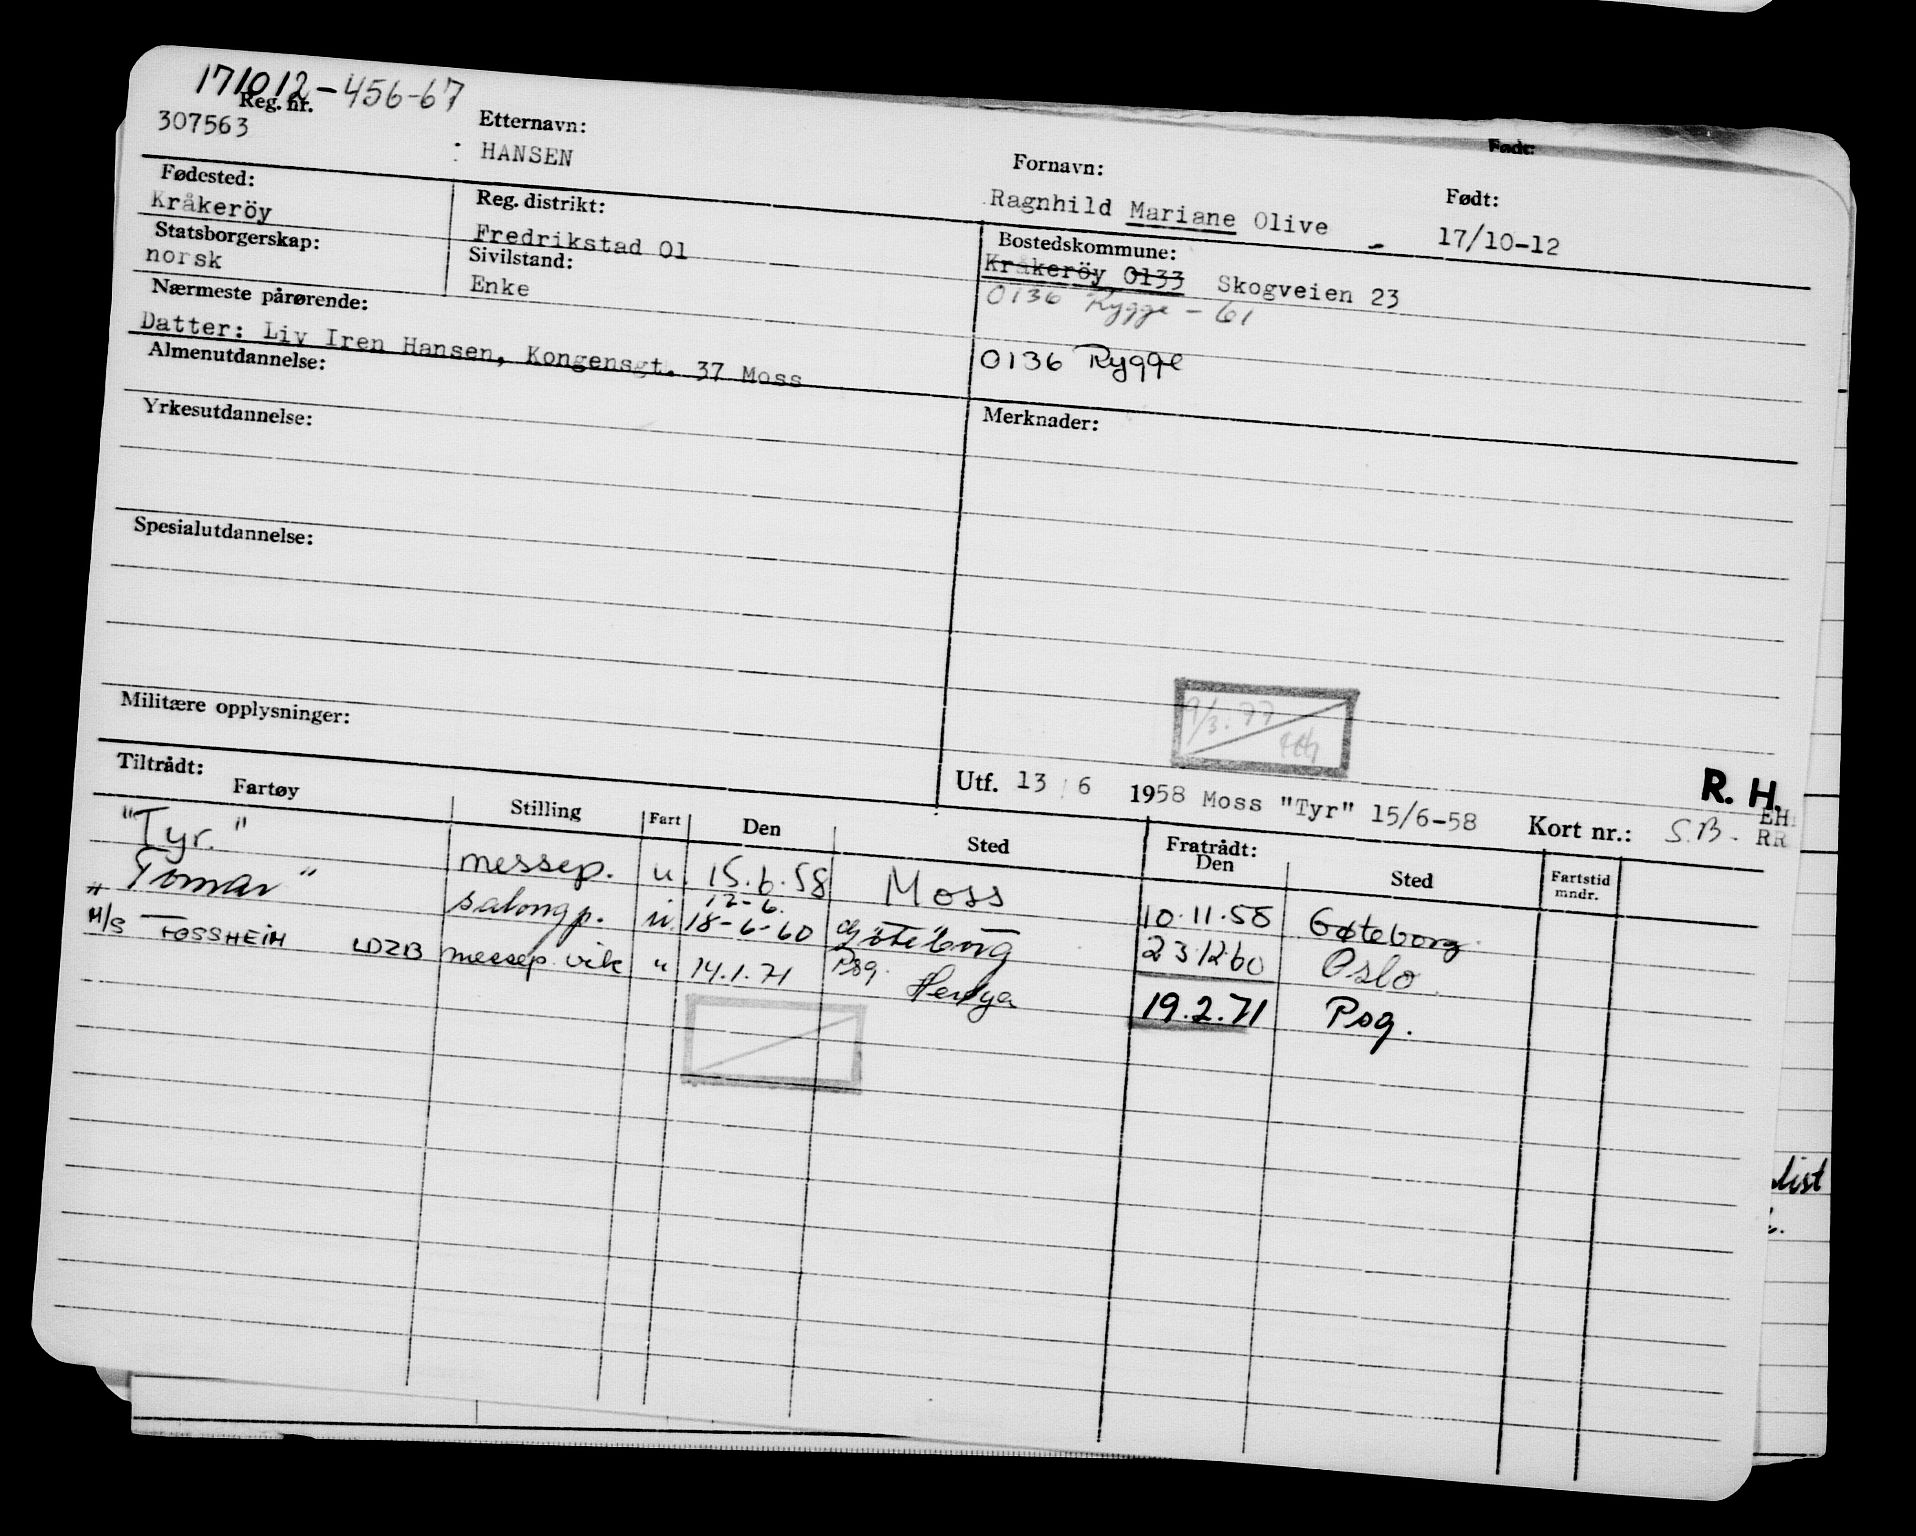 171012-456-67
Reg. nr.
307563
Etternavn:
HANSEN
Fornavn:
Ragnhild Mariane Olive
Født:
Født:
17/10-12
Fødested:
Kråkeröy
Reg. distrikt:
Fredrikstad 01
Bostedskommune:
Kråkeröy 0133 Skogveien 23
0136 Rygge - 61
0136 Rygge
Statsborgerskap:
norsk
Sivilstand:
Enke
Nærmeste pårørende:
Datter: Liv Iren Hansen, Kongensgt. 37 Moss
Almenutdannelse:
Yrkesutdannelse:
Merknader:
Spesialutdannelse:
Militære opplysninger:
9/3.77
Utf. 13 6 1958 Moss "Tyr" 15/6-58
Kort nr.: S.B.
R. H.
EH
RR
Tiltrådt:
Fartøy Stilling Fart Den Sted Fratrådt: Den Sted Fartstid mndr.
"Tyr." messep. u 15.6.58 Moss 10.11.58 Gøteborg
12-6.
"Tomar" salongp. u 18-6-60 Gøteborg 23.12.60 Oslo
M/S FOSSHEIM LDZB messep. vik " 14.1.71 Psg. Herøya 19.2.71 Psg.
list